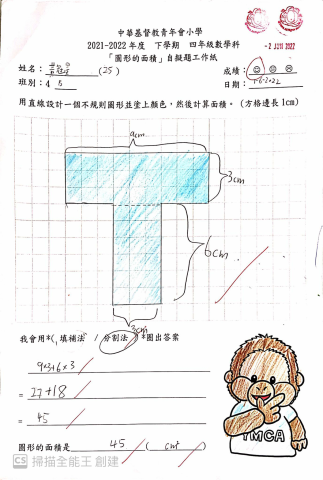 中華基督教青年會小學
2021-2022 年度 下學期 四年級數學科
「圖形的面積」自擬題工作紙
-2 JUN 2022
姓名： (25)
成績：
班別：4
日期：1-6-2022
用直線設計一個不規則圖形並塗上顏色，然後計算面積。(方格邊長 1cm)
9cm
3cm
6cm
3cm
我會用*( 填補法 / 分割法 ) *圈出答案
9×3+6×3
= 27+18
= 45
圖形的面積是 45 ( cm² )
YMCA
CS 掃描全能王 創建